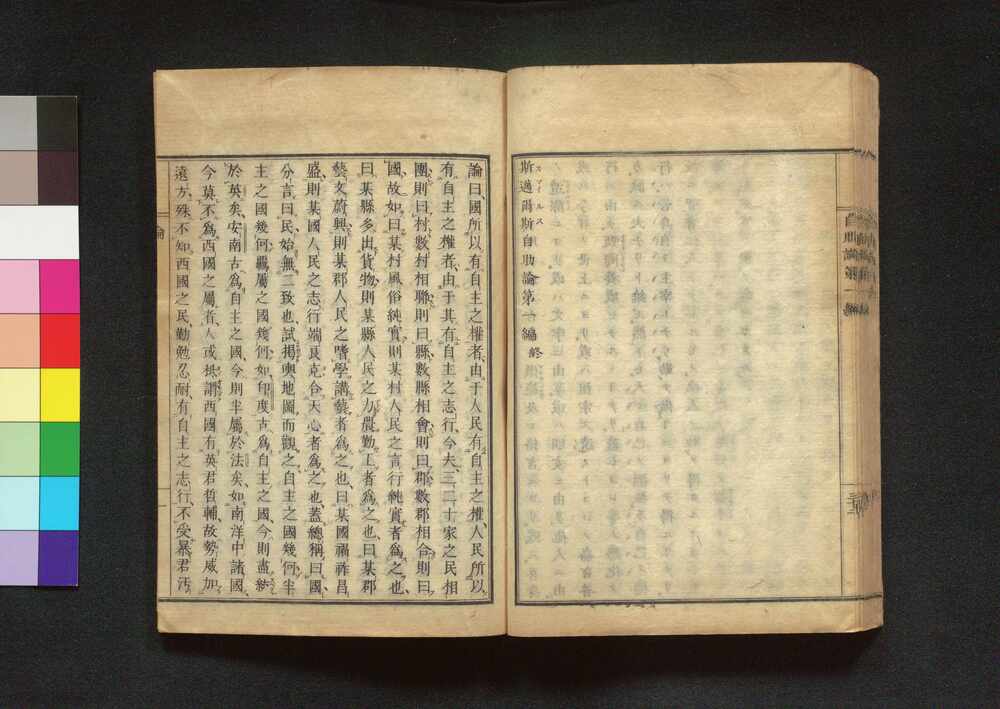 斯邁爾斯自助論第一編終
スマイルス
論曰、國所以有自主之權者、由于人民有自主之權、人民所以
有自主之權者、由于其有自主之志行、今夫二三十家之民相
團、則曰村、數村相聯、則曰縣、數縣相會、則曰郡、數郡相合、則曰
國、故如曰某村風俗純實、則某村人民之言行純實者爲之也、
曰某縣多出貨物、則某縣人民之力農勤工者爲之也、曰某郡
藝文蔚興、則某郡人民之嗜學講藝者爲之也、曰某國福祚昌
盛、則某國人民之志行端良、克合天心者爲之也、蓋總稱曰國、
分言曰民、始無二致也、試揭輿地圖而觀之、自主之國幾何、半
主之國幾何、羈屬之國幾何、如印度古爲自主之國、今則盡統
於英矣、安南古爲自主之國、今則半屬於法矣、如南洋中諸國、
今莫不爲西國之屬者、人或視謂西國有英君哲輔、故勢威加
遠方、殊不知西國之民、勤勉忍耐、有自主之志行、不受暴君汚